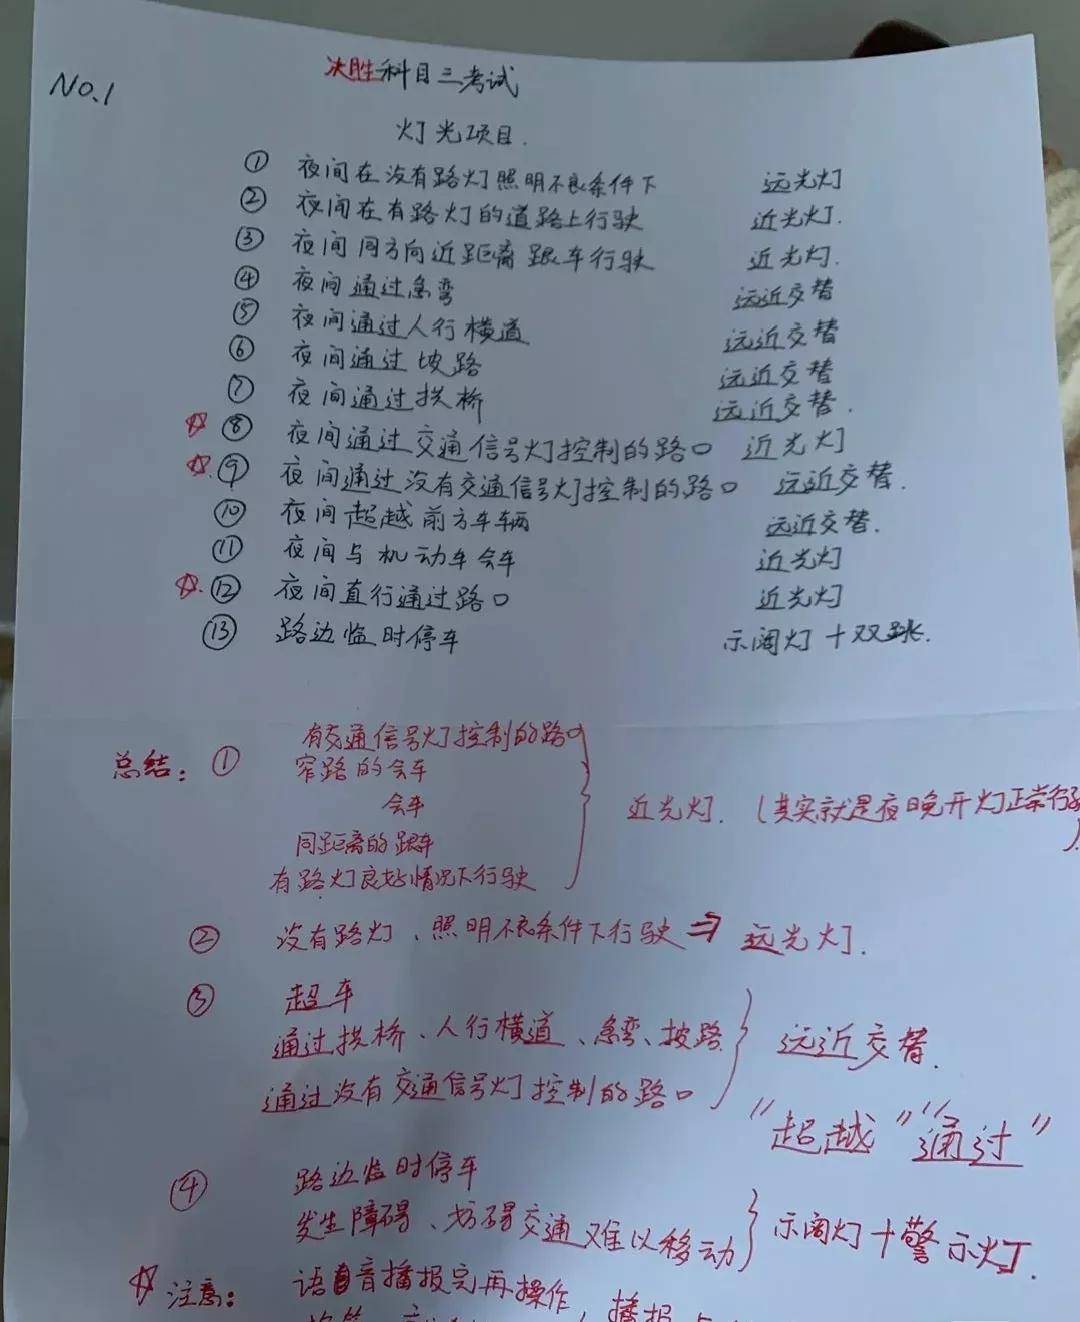 NO.1
决胜科目三考试
灯光项目.
① 夜间在没有路灯照明不良条件下 远光灯
② 夜间在有路灯的道路上行驶 近光灯.
③ 夜间同方向近距离跟车行驶 近光灯.
④ 夜间通过急弯 远近交替
⑤ 夜间通过人行横道 远近交替
⑥ 夜间通过坡路 远近交替
⑦ 夜间通过拱桥 远近交替.
☆ ⑧ 夜间通过交通信号灯控制的路口 近光灯
☆. ⑨ 夜间通过没有交通信号灯控制的路口 远近交替.
⑩ 夜间超越前方车辆 远近交替.
⑪ 夜间与机动车会车 近光灯
☆. ⑫ 夜间直行通过路口 近光灯
⑬ 路边临时停车 示阔灯+双跳.
总结: ① 有交通信号灯控制的路口
窄路的会车
会车
同距离的跟车
有路灯良好情况下行驶
近光灯. (其实就是夜晚开灯正常行
② 没有路灯、照明不良条件下行驶⇒远光灯.
③ 超车
通过拱桥、人行横道、急弯、坡路
通过没有交通信号灯控制的路口
远近交替.
"超越" "通过"
④ 路边临时停车
发生障碍、妨碍交通难以移动
示阔灯+警示灯.
☆ 注意: 语音播报完再操作, 播报